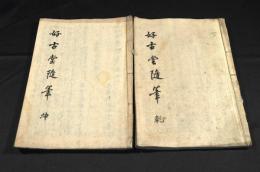 好古堂随筆 乾
好古堂随筆 坤